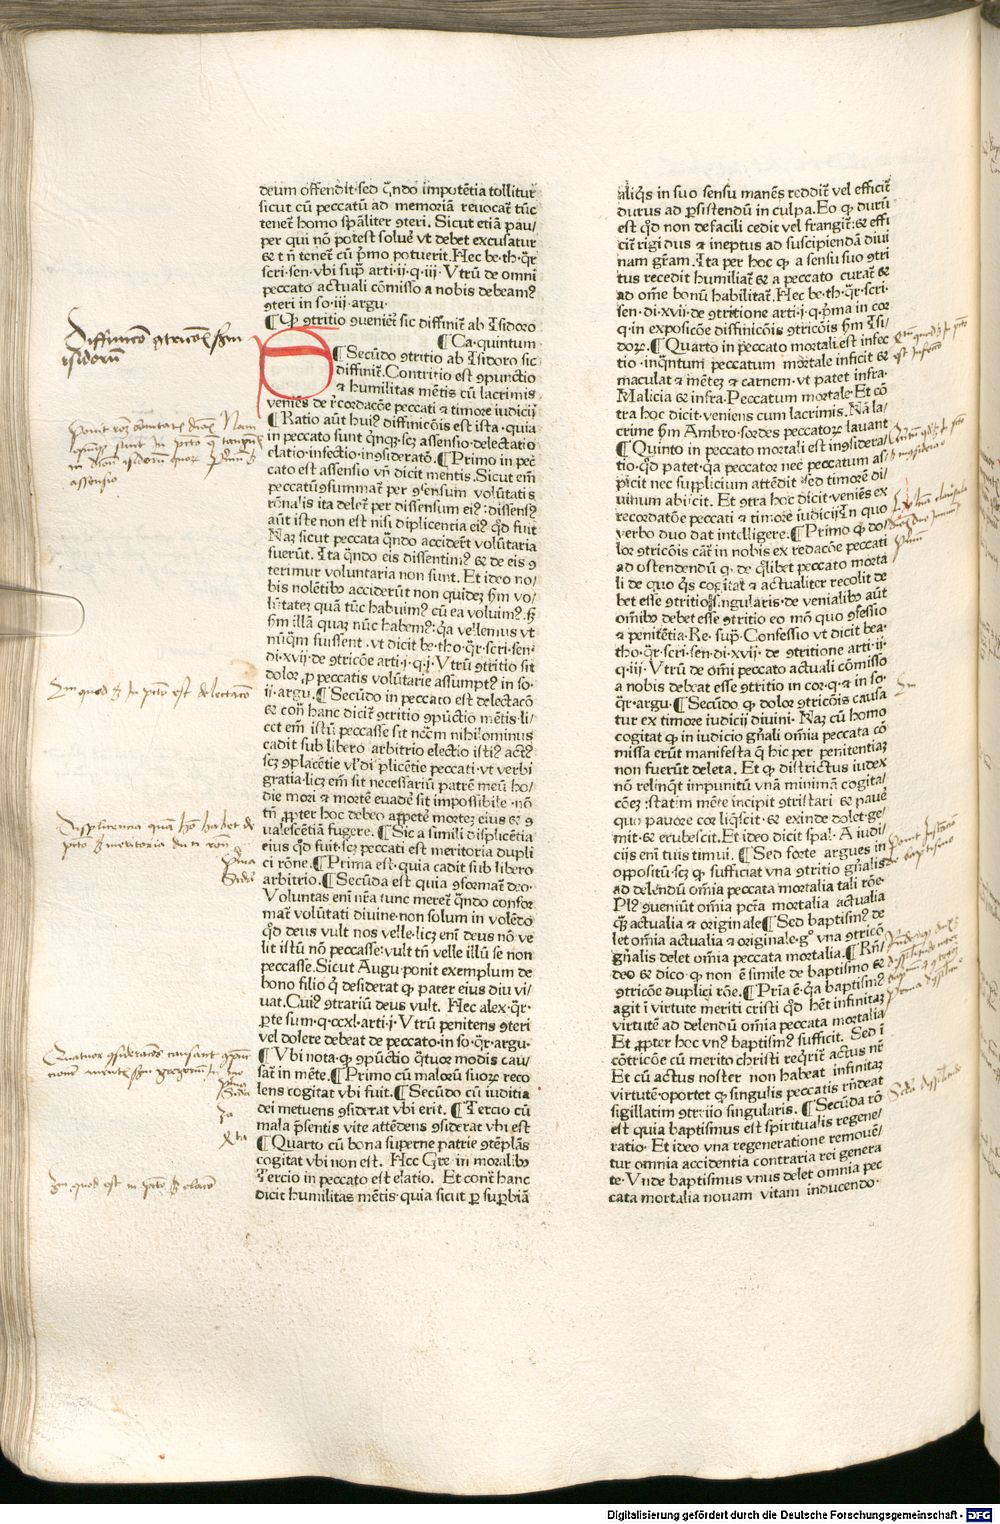 deum offendit·sed q̄ndo impotētia tollitur
sicut cū peccatū ad memoriā reuocat᷑ tūc
tenet᷑ homo spāliter ꝯteri. Sicut etiā pau/
per qui nō potest solue᷑ vt debet excusatur
& t̄n tenet᷑ cū p̄mo potuerit. Hec be·th·q̄r·
scri·sen·vbi sup̄ arti·ii·q·iij·Vtrū de omni
peccato actuali cōmisso a nobis debeamꝰ
ꝯteri in so·iij·argu·
¶ Qꝫ ꝯtritio ꝯueniēt᷑ sic diffinit᷑ ab Isidoro
¶ Ca·quintum·
¶ Secūdo ꝯtritio ab Isidoro sic
diffinit᷑. Contritio est ꝯpunctio
& humilitas mētis cū lacrimis
veniēs de r̄cordacōe peccati & timore iudicij
¶ Ratio aūt huiꝰ diffinicōis est ista·quia
in peccato sunt q̄nqꝫ·scꝫ assensio·delectatio
elatio·infectio·inꝯsideratō. ¶ Primo in pec̄
cato est assensio vn̄ dicit mentis. Sicut em̄
peccatū ꝯsummat᷑ per ꝯsensum volūtatis
rōnalis ita delet᷑ per dissensum eiꝰ: dissensꝰ
aūt iste non est nisi diplicentia eiꝰ qd̄ fuit
Naꝫ sicut peccata q̄ndo accidert̄ volūtaria
fuerūt. Ita q̄ndo eis dissentimꝰ & de eis ꝯ
terimur voluntaria non sunt. Et ideo no/
bis nolētibꝰ acciderūt non quideꝫ s̄m vo/
lūtateꝫ quā tūc habuimꝰ cū ea voluimꝰ. sꝫ
s̄m illā quaꝫ nūc habemꝰ: q̄a vellemus vt
nūq̄m fuissent·vt dicit be·tho·q̄r·scri·sen·
di·xvij·de ꝯtricōe arti·j·q·j·Vtrū ꝯtritio sit
dolor ꝓ peccatis volūtarie assumptꝰ in so·
ij·argu·¶ Secūdo in peccato est delectacō
& con̄ hanc dicit᷑ ꝯtritio ꝯpūctio mētis·li/
cet em̄ istū peccasse sit nec̄cm nihilominus
cadit sub libero arbitrio electio istiꝰ actꝰ
scꝫ ꝯplacētie vl̄ diplicētie peccati·vt verbi
gratia·licꝫ em̄ sit necessariū patrē meū ho/
die mori & mortē euade᷑ sit impossibile·nō
tn̄ ꝓpter hoc debeo appete᷑ morteꝫ eius & ꝯ
ualescētiā fugere. ¶ Sic a simili displicētia
eius qd̄ fuit·scꝫ peccati est meritoria dupli
ci rōne. ¶ Prima est·quia cadit sub libero
arbitrio. ¶ Secūda est quia ꝯformat᷑ deo·
Voluntas eni nr̄a tunc meret᷑ q̄ndo confor
mat᷑ volūtati diuine·non solum in volēdo
qd̄ deus vult nos velle·licꝫ em̄ deus nō ve
lit istū nō peccasse: vult tn̄ velle illū se non
peccasse. Sicut Augu·ponit exemplum de
bono filio q̄ desiderat qꝫ pater eius diu vi/
uat. Cuiꝰ ꝯtrariū deus vult. Hec alex·q̄r·
ꝑte sum·q·ccxl·arti·j·Vtrū penitens ꝯteri
vel dolere debeat de peccato·in so·q̄r·argu·
¶ Vbi nota·qꝫ ꝯpūctio q̄tuor modis cau/
sat᷑ in mēte. ¶ Primo cū malorū suoꝝ reco
lens cogitat vbi fuit. ¶ Secūdo cū iuditia
dei metuens ꝯsiderat vbi erit. ¶ Tercio cū
mala p̄sentis vite attēdens ꝯsiderat vbi est
¶ Quarto cū bona superne patrie ꝯtēplās
cogitat vbi non est. Hec Gre·in moralibꝰ
Tercio in peccato est elatio. Et contra hanc
dicit humilitas mētis·quia sicut ꝑ suꝑbiā
aliq̄s in suo sensu manēs reddit᷑ vel efficit᷑
durus ad ꝑsistendū in culpa. Eo qꝫ durū
est qd̄ non defacili cedit vel frangit᷑: & effi
cit᷑ rigidus & ineptus ad suscipiendā diui
nam grām. Ita per hoc qꝫ a sensu suo ꝯtri
tus recedit humiliat᷑ & a peccato curat᷑ &
ad om̄e bonū habilitat᷑. Hec be·th·q̄r·scri·
sen·di·xvii·de ꝯtritione arti·j·q·p̄ma in cor
q·in exposicōe diffinicōis ꝯtricōis s̄m Isi/
doꝝ. ¶ Quarto in peccato mortali est infec
tio·inq̄ntum peccatum mortale inficit &
maculat & mēteꝫ & carnem·vt patet infra·
Malicia & infra. Peccatum mortale·Et cō
tra hoc dicit·veniens cum lacrimis. Nā la/
crime s̄m Ambro·sordes peccatoꝝ lauant
¶ Quinto in peccato mortali est inꝯsidera/
tio·qd̄ patet·q̄a peccator nec peccatum as/
picit nec supplicium attēdit·sed timorē di/
uinum abiicit. Et ꝯtra hoc dicit·veniēs ex
recordatōe peccati & timore iudicij In quo
verbo duo dat intelligere. ¶ Primo qꝫ do/
lor ꝯtricōis cāt᷑ in nobis ex redacōe peccati
ad ostendendū qꝫ de q̄libet peccato morta
li de quo q̄s cogitat & actualiter recolit de
bet esse ꝯtritio singularis·de venialibꝰ aūt
om̄ibꝰ debet esse ꝯtritio eo mō quo ꝯfessio
& penitētia·Re·sup̄·Confessio·vt dicit bea·
tho·q̄r·scri·sen·di·xvij·de ꝯtritione arti·ij·
q·iij·Vtrū de om̄i peccato actuali cōmisso
a nobis debeat esse ꝯtritio in cor·q·& in so·
q̄r·argu·¶ Secūdo qꝫ dolor ꝯtricōis causa
tur ex timore iudicij diuini·Naꝫ cū homo
cogitat qꝫ in iudicio gn̄ali om̄ia peccata cō
missa erūt manifesta q̄ hic per penitentiaꝫ
non fuerūt deleta. Et qꝫ districtus iudex
nō relinq̄t impunitū vnā minimā cogita/
cōeꝫ: statim mēte incipit ꝯtristari & paue᷑
quo pauore cor liq̄scit·& exinde dolet·ge/
mit·& erubescit. Et ideo dicit spal·A iudi/
cijs em̄ tuis timui. ¶ Sed forte argues in
oppositū·scꝫ qꝫ sufficiat vna ꝯtritio gn̄alis
ad delendū om̄ia peccata mortalia tali rōe·
Plꝰ ꝯueniūt om̄ia pctā mortalia actualia
qꝫ actualia & originale ¶ Sed baptismꝰ de
let om̄ia actualia & originale·gͦ vna ꝯtricō
gn̄alis delet om̄ia peccata mortalia. ¶ Rn̄/
deo & dico·qꝫ non ē simile de baptismo &
ꝯtricōe duplici rōe. ¶ Prīa ē·q̄a baptismꝰ
agit ī virtute meriti cristi qd̄ hēt infinitaꝫ
virtutē ad delendū om̄ia peccata mortalia
Et ꝓpter hoc vnꝰ baptismꝰ sufficit. Sed ī
cōtricōe cū merito christi req̄rit᷑ actus nr̄
Et cū actus noster non habeat infinitaꝫ
virtutē·oportet qꝫ singulis peccatis rn̄deat
sigillatim ꝯtritio singularis. ¶ Secūda rō
est quia baptismus est spiritualis regene/
ratio·Et ideo vna regeneratione remouē/
tur omnia accidentia contraria rei genera
te·Vnde baptismus vnus delet omnia pec
cata mortalia nouam vitam inducendo·
Digitalisierung gefördert durch die Deutsche Forschungsgemeinschaft - DFG